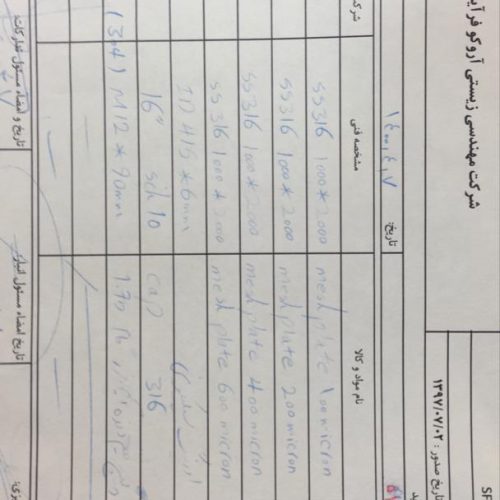 شرکت مهندسی زیستی آروکو فرآی
SF
تاریخ صدور : ۱۳۹۷/۰۷/۰۲
تاریخ: ۱۴۰۰,۴,۷
نام مواد و کالا مشخصه فنی شرک
mesh plate ۱۰۰ micron SS316 1000*2000
mesh plate 200 micron SS316 1000*2000
mesh plate 400 micron SS316 1000*2000
mesh plate 600 micron SS316 1000*2000
ID 415*6mm
cap 316 16" sch 10
(304) M12*90mm
تاریخ امضاء مسئول انبار تاریخ و امضاء مسئول تدارکات: